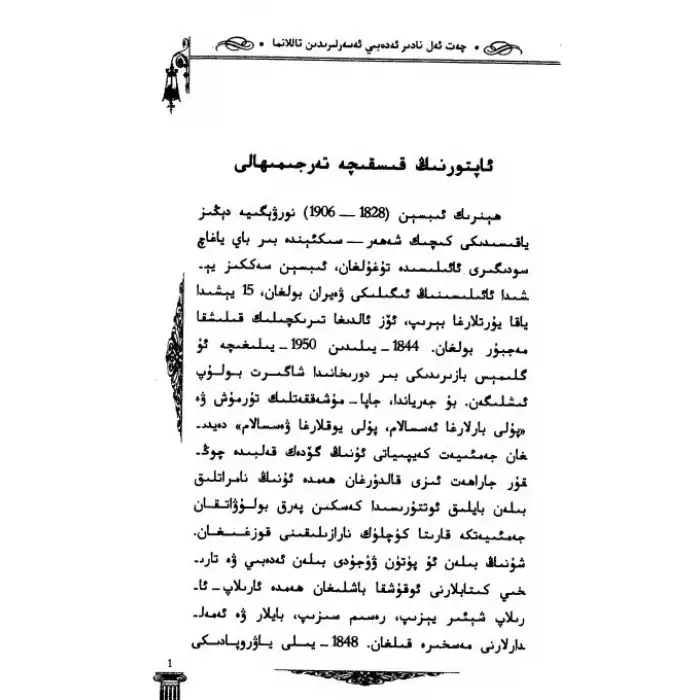 • چەت ئەل نادىر ئەدەبىي ئەسەرلىرىدىن تاللانما •
ئاپتورنىڭ قىسقىچە تەرجىمىھالى
ھېنرىك ئىبسېن (1828 — 1906) نورۋېگىيە دېڭىز
ياقىسىدىكى كىچىك شەھەر — سىكئېندە بىر باي ياغاچ
سودىگىرى ئائىلىسىدە تۇغۇلغان، ئىبسېن سەككىز يې-
شىدا ئائىلىسىنىڭ ئىگىلىكى ۋەيران بولغان، 15 يېشىدا
ياقا يۇرتلارغا بېرىپ، ئۆز ئالدىغا تىرىكچىلىك قىلىشقا
مەجبۇر بولغان. 1844 - يىلىدىن 1950 - يىلىغىچە ئۇ
گلىمېس بازىرىدىكى بىر دورىخانىدا شاگىرت بولۇپ
ئىشلىگەن. بۇ جەرياندا، جاپا - مۇشەققەتلىك تۇرمۇش ۋە
«پۇلى بارلارغا ئەسسالام، پۇلى يوقلارغا ۋەسسالام» دەيدى-
غان جەمئىيەت كەيپىياتى ئۇنىڭ گۆدەك قەلبىدە چوڭ-
قۇر جاراھەت ئىزى قالدۇرغان ھەمدە ئۇنىڭ نامراتلىق
بىلەن بايلىق ئوتتۇرىسىدا كەسكىن پەرق بولۇۋاتقان
جەمئىيەتكە قارىتا كۈچلۈك نارازىلىقىنى قوزغىغان.
شۇنىڭ بىلەن ئۇ پۈتۈن ۋۇجۇدى بىلەن ئەدەبىي ۋە تارى-
خىي كىتابلارنى ئوقۇشقا باشلىغان ھەمدە ئارىلاپ - ئا-
رىلاپ شېئىر يېزىپ، رەسىم سىزىپ، بايلار ۋە ئەمەل-
دارلارنى مەسخىرە قىلغان. 1848 - يىلى ياۋروپادىكى
1